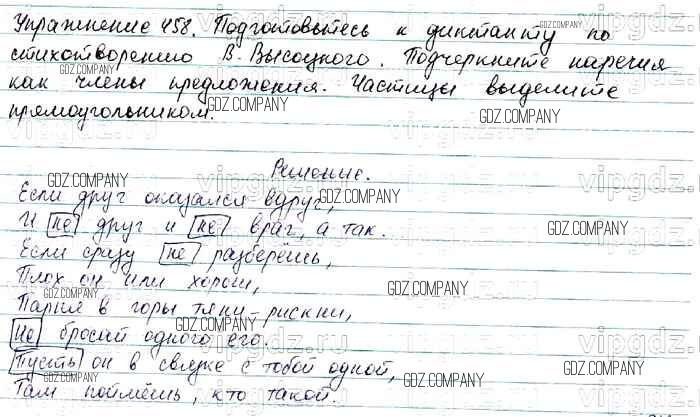 Упражнение 458. Подготовьтесь к диктанту по
стихотворению В. Высоцкого. Подчеркните наречия
как члены предложения. Частицы выделите
прямоугольником.
Решение.
Если друг оказался вдруг,
И не друг и не враг, а так.
Если сразу не разберёшь,
Плох он или хорош,
Парня в горы тяни - рискни,
Не бросай одного его.
Пусть он в связке с тобой одной,
Там поймёшь, кто такой.
GDZ.COMPANY
vipgdz.ru